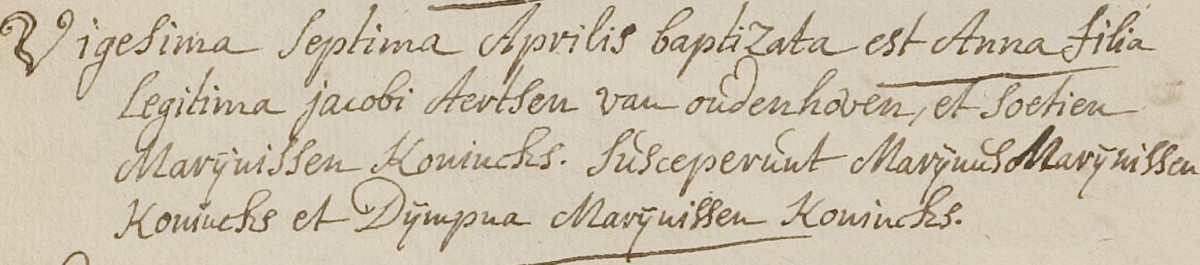 Vigesima Septima Aprilis baptizata est Anna filia
legitima jacobi Aertsen van oudenhoven, et Soetien
Marÿnissen Koninchs. Susceperunt Marÿnus Marÿnissen
Koninchs et Dÿmpna Marÿnissen Koninchs.